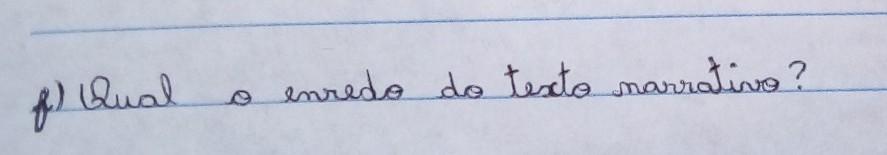 f) Qual o enredo do texto narrativo?